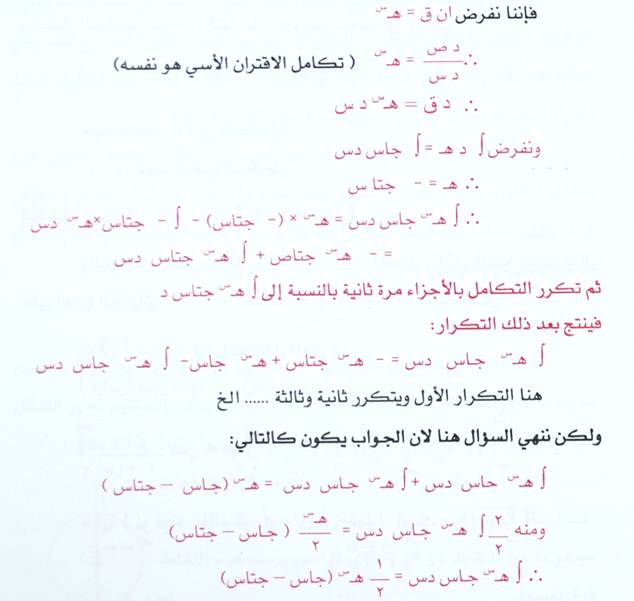 فإننا نفرض ان ق = هـ^س
∴ د ص / د س = هـ^س ( تكامل الاقتران الأسي هو نفسه)
∴ د ق = هـ^س د س
ونفرض ∫ د هـ = ∫ جاس دس
∴ هـ = - جتا س
∴ ∫ هـ^س جاس دس = هـ^س × (- جتاس) - ∫ - جتاس×هـ^س دس
= - هـ^س جتاص + ∫ هـ^س جتاس دس
ثم تكرر التكامل بالأجزاء مرة ثانية بالنسبة إلى ∫ هـ^س جتاس د
فينتج بعد ذلك التكرار:
∫ هـ^س جاس دس = - هـ^س جتاس + هـ^س جاس - ∫ هـ^س جاس دس
هنا التكرار الأول ويتكرر ثانية وثالثة ...... الخ
ولكن ننهي السؤال هنا لان الجواب يكون كالتالي:
∫ هـ^س حاس دس + ∫ هـ^س جاس دس = هـ^س (جاس – جتاس )
ومنه ٢/٢ ∫ هـ^س جاس دس = هـ^س/٢ ( جاس – جتاس)
∴ ∫ هـ^س جاس دس = ١/٢ هـ^س (جاس – جتاس)